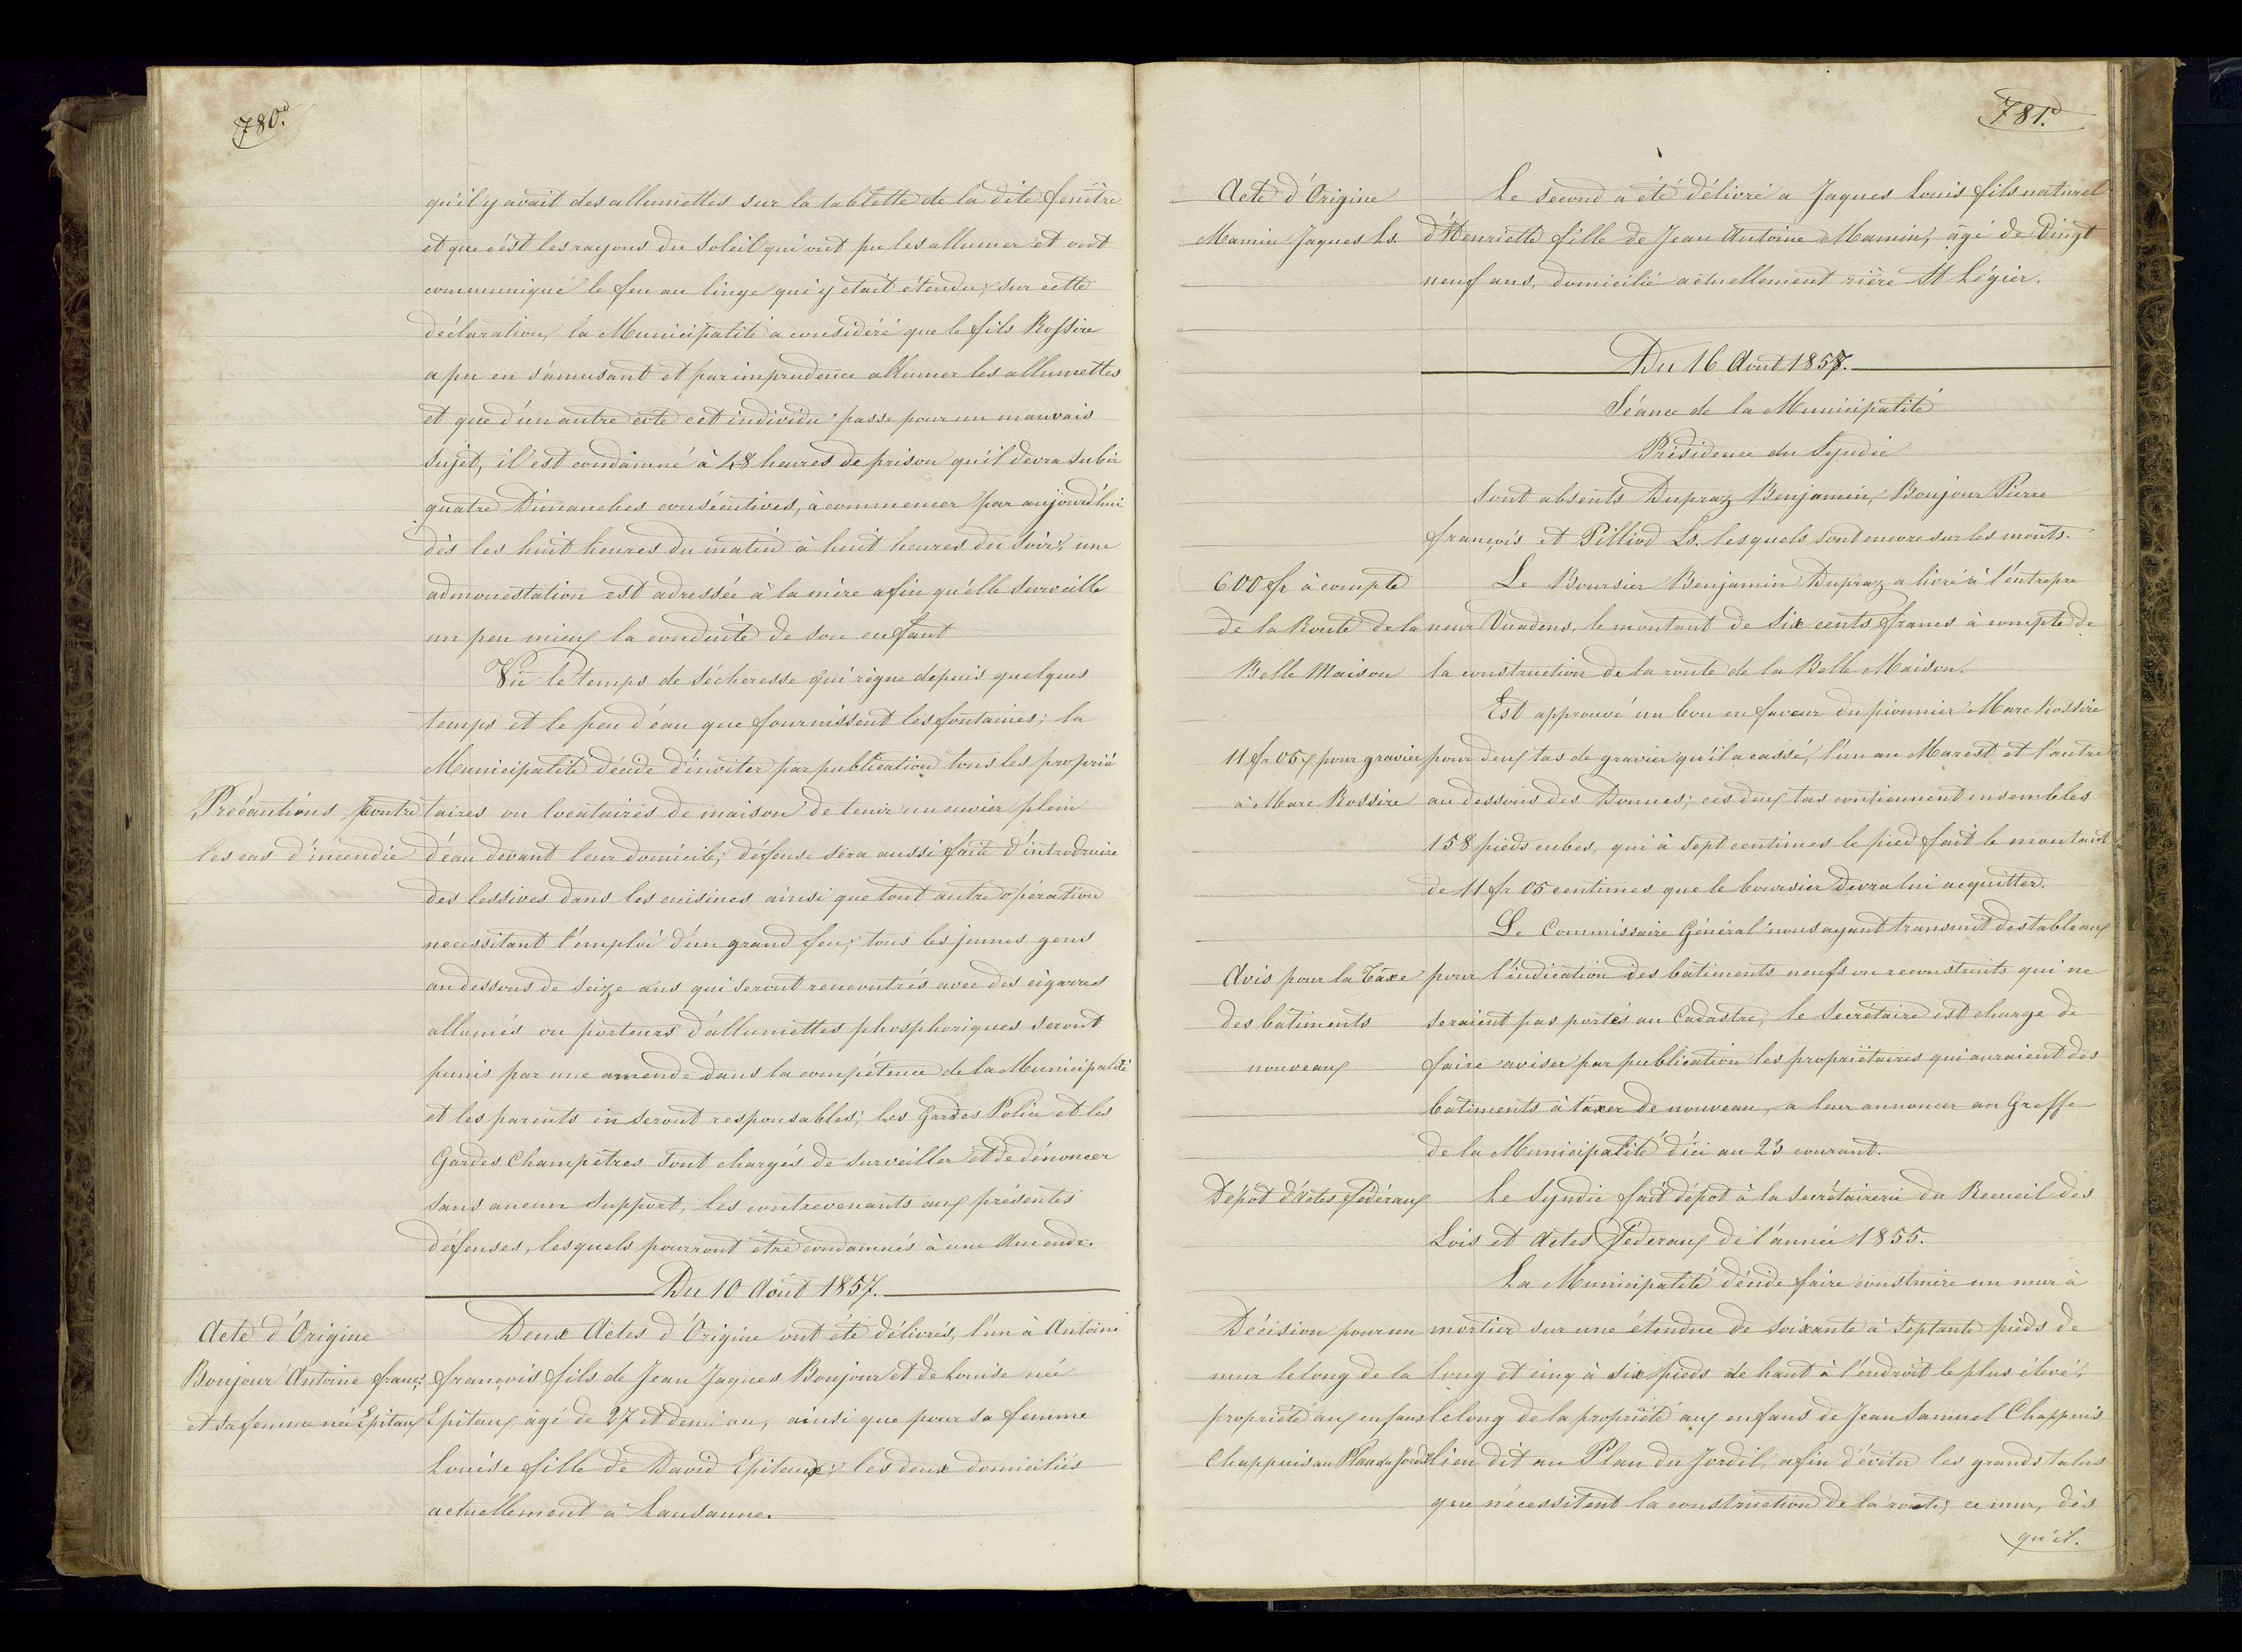 780.
qu'il y avait des allumettes sur la tablette de la dite fenêtre
et que c'est les rayons du soleil qui ont pu les allumer et ont
communiqué le feu au linge qui y était étendu; sur cette
déclaration, la Municipalité a considéré que le fils Rossire
a pu en s'amusant et par imprudence allumer les allumettes
et que d'un autre coté cet individu passe pour un mauvais
sujet, il est condamné à 48 heures de prison qu'il devra subir
quatre Dimanches consécutives, à commencer par aujourd'hui
dès les huit heures du matin à huit heures du soir; une
admonestation est adressée à la mère afin qu'elle surveille
un peu mieux la conduite de son enfant
Vu le temps de sécheresse qui règne depuis quelques
temps et le peu d'eau que fournissent les fontaines; la
Municipalité décide d'inviter par publication tous les proprié
Précautions contre taires ou locataires de maison de tenir un cuvier plein
les cas d'incendie d'eau devant leur domicile; défense sera aussi faite d'introduire
des lessives dans les cuisines ainsi que tout autre opération
necessitant l'emploi d'un grand feu; tous les jeunes gens
au dessous de seize ans qui seront rencontrés avec des cigarres
allumés ou porteurs d'allumettes phosphoriques seront
punis par une amende dans la compétence de la Municipalité
et les parents en seront responsables; les Gardes Police et les
Gardes Champêtres sont chargés de surveiller et de dénoncer
sans aucun support, les contrevenants aux présentes
défenses, lesquels pourront être condamnés à une Amende.
Du 10 Août 1857.
Acte d'Origine Deux Actes d'Origine ont été délivrés, l'un à Antoine
Bonjour Antoine franç: françois fils de Jean Jaques Bonjour et de Louise née
et sa femme née Epitaux Epitaux âgé de 27 et demi an, ainsi que pour sa femme
Louise fille de David Epitaux; les deux domiciliés
actuellement à Lausanne.
781.
Acte d'Origine Le second a été délivré a Jaques Louis fils naturel
Mamin Jaques Ls. d'Henriette fille de Jean Antoine Mamin, âgé de Vingt
neuf ans, domicilié actuellement rière St Légier.
Du 16 Août 1857.
Séance de la Municipalité
Présidence du Syndic
Sont absents Dupraz Benjamin, Bonjour Pierre
françois et Pilliod Ls. lesquels sont encore sur les monts.
600 fr à compte Le Boursier Benjamin Dupraz a livré à l'entrepre
de la Route de la neur Vuadens, le montant de Six cents francs à compte de
Belle Maison la construction de la route de la Belle Maison.
Est approuvé un bon en faveur du pionnier Marc Rossire
11 fr 05 c pour gravier pour deux tas de gravier qu'il a cassé, l'un au Marest et l'autre
à Marc Rossire au dessous des Bonnes; ces deux tas contiennent ensembles
158 pieds cubes, qui à sept centimes le pied fait le montant
de 11 fr 05 centimes que le boursier devra lui acquitter.
Le Commissaire Général nous ayant transmit des tableaux
Avis pour la Taxe pour l'indication des bâtiments neufs ou reconstruits qui ne
des bâtiments seraient pas portés au Cadastre, le Secrétaire est charge de
nouveaux faire aviser par publication les propriétaires qui auraient des
bâtiments à taxer de nouveau, a leur annoncer au Greffe
de la Municipalité d'ici au 23 courant.
Dépot d'Actes Fédéraux Le Syndic fait dépot à la secrétairerie du Recueil des
Lois et Actes Féderaux de l'année 1855.
La Municipalité décide faire construire un mur à
Décision pour un mortier sur une étendue de soixante à septante pieds de
mur le long de la long et cinq à six pieds de haut à l'endroit le plus élevé,
propriété aux enfans le long de la propriété aux enfans de Jean Samuel Chappuis
Chappuis au Plan du Jordil lieu dit au Plan du Jordil, afin d'éviter les grands talus
que nécessitent la construction de la route; ce mur, dès
qu'il.